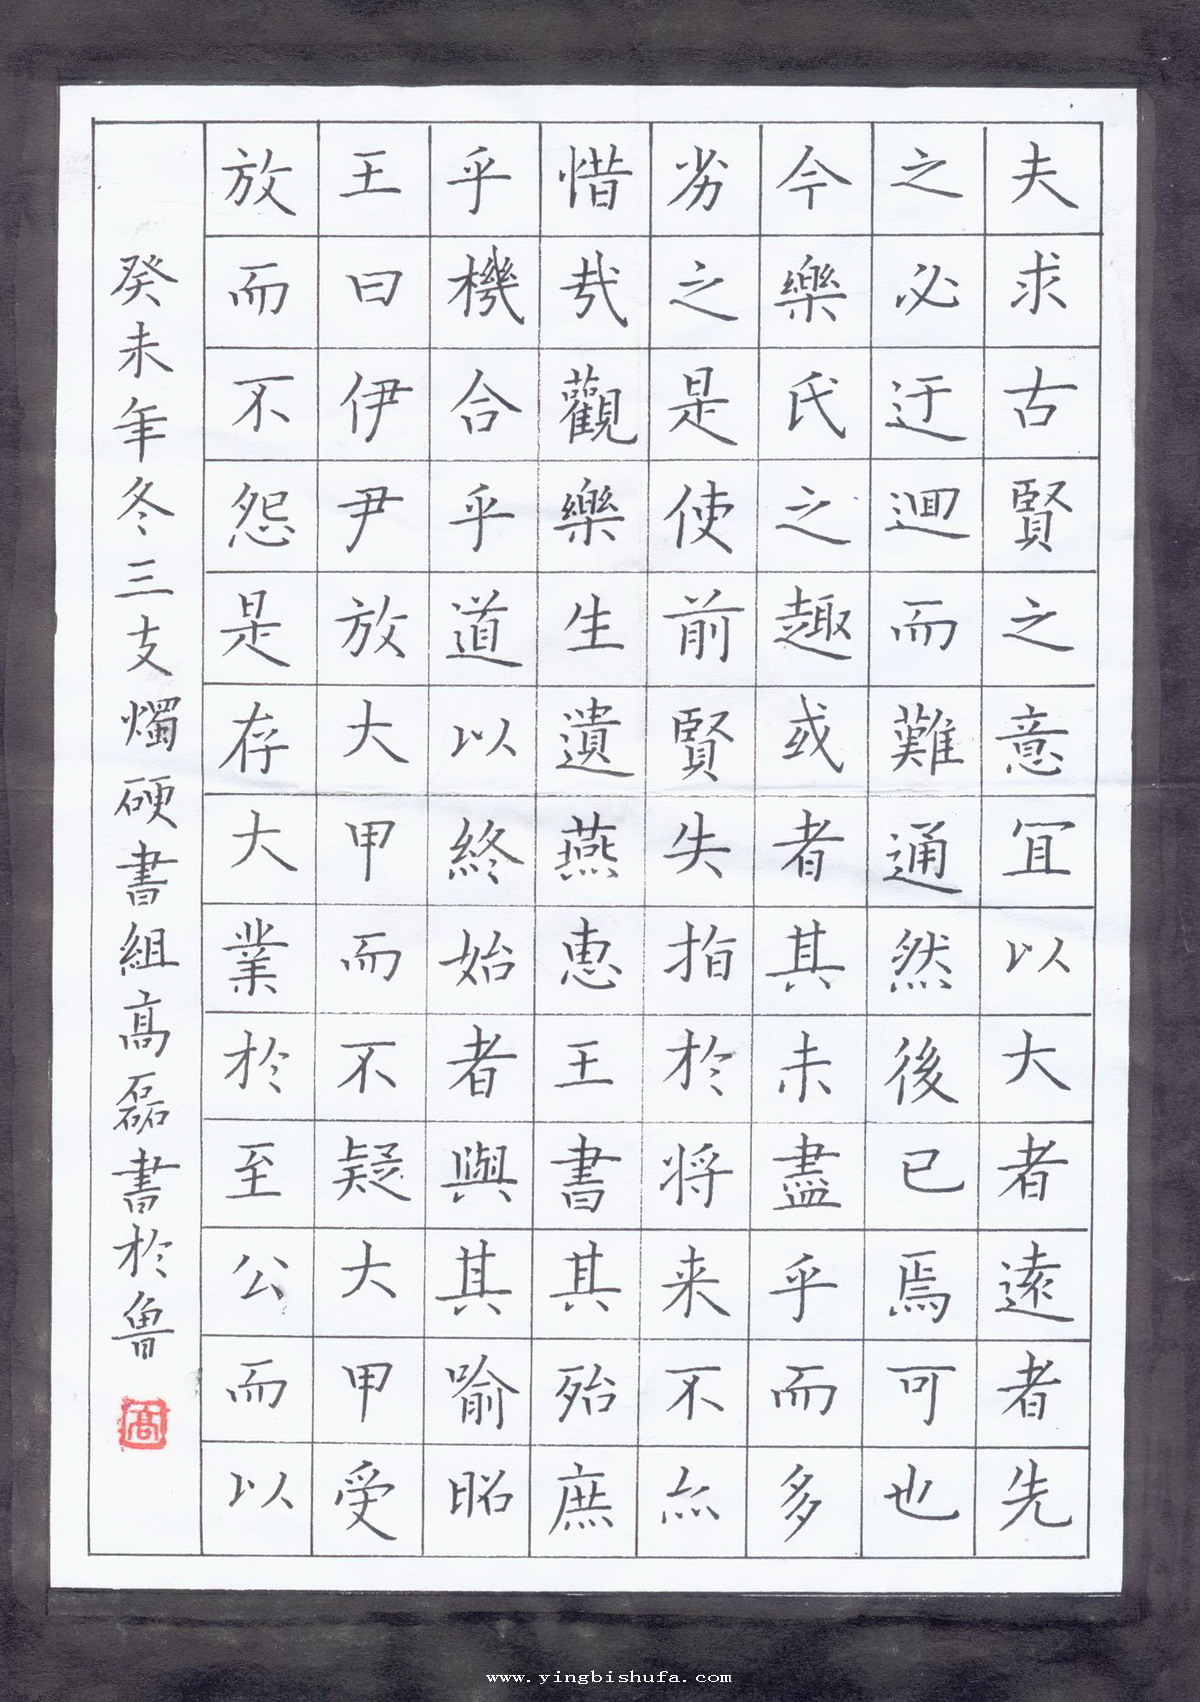 夫求古賢之意冝以大者遠者先
之必迂迴而難通然後已焉可也
今樂氏之趣或者其未盡乎而多
劣之是使前賢失指於将来不亦
惜㦲觀樂生遺燕惠王書其殆庶
乎機合乎道以終始者與其喻昭
王曰伊尹放大甲而不疑大甲受
放而不怨是存大業於至公而以
癸未年冬三支燭硬書組高磊書於魯
高
www.yingbishufa.com